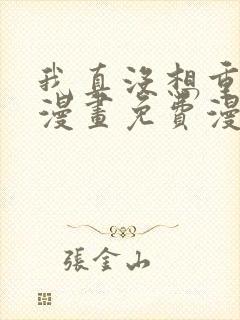 我真没想重
漫畫免費漫
張金山